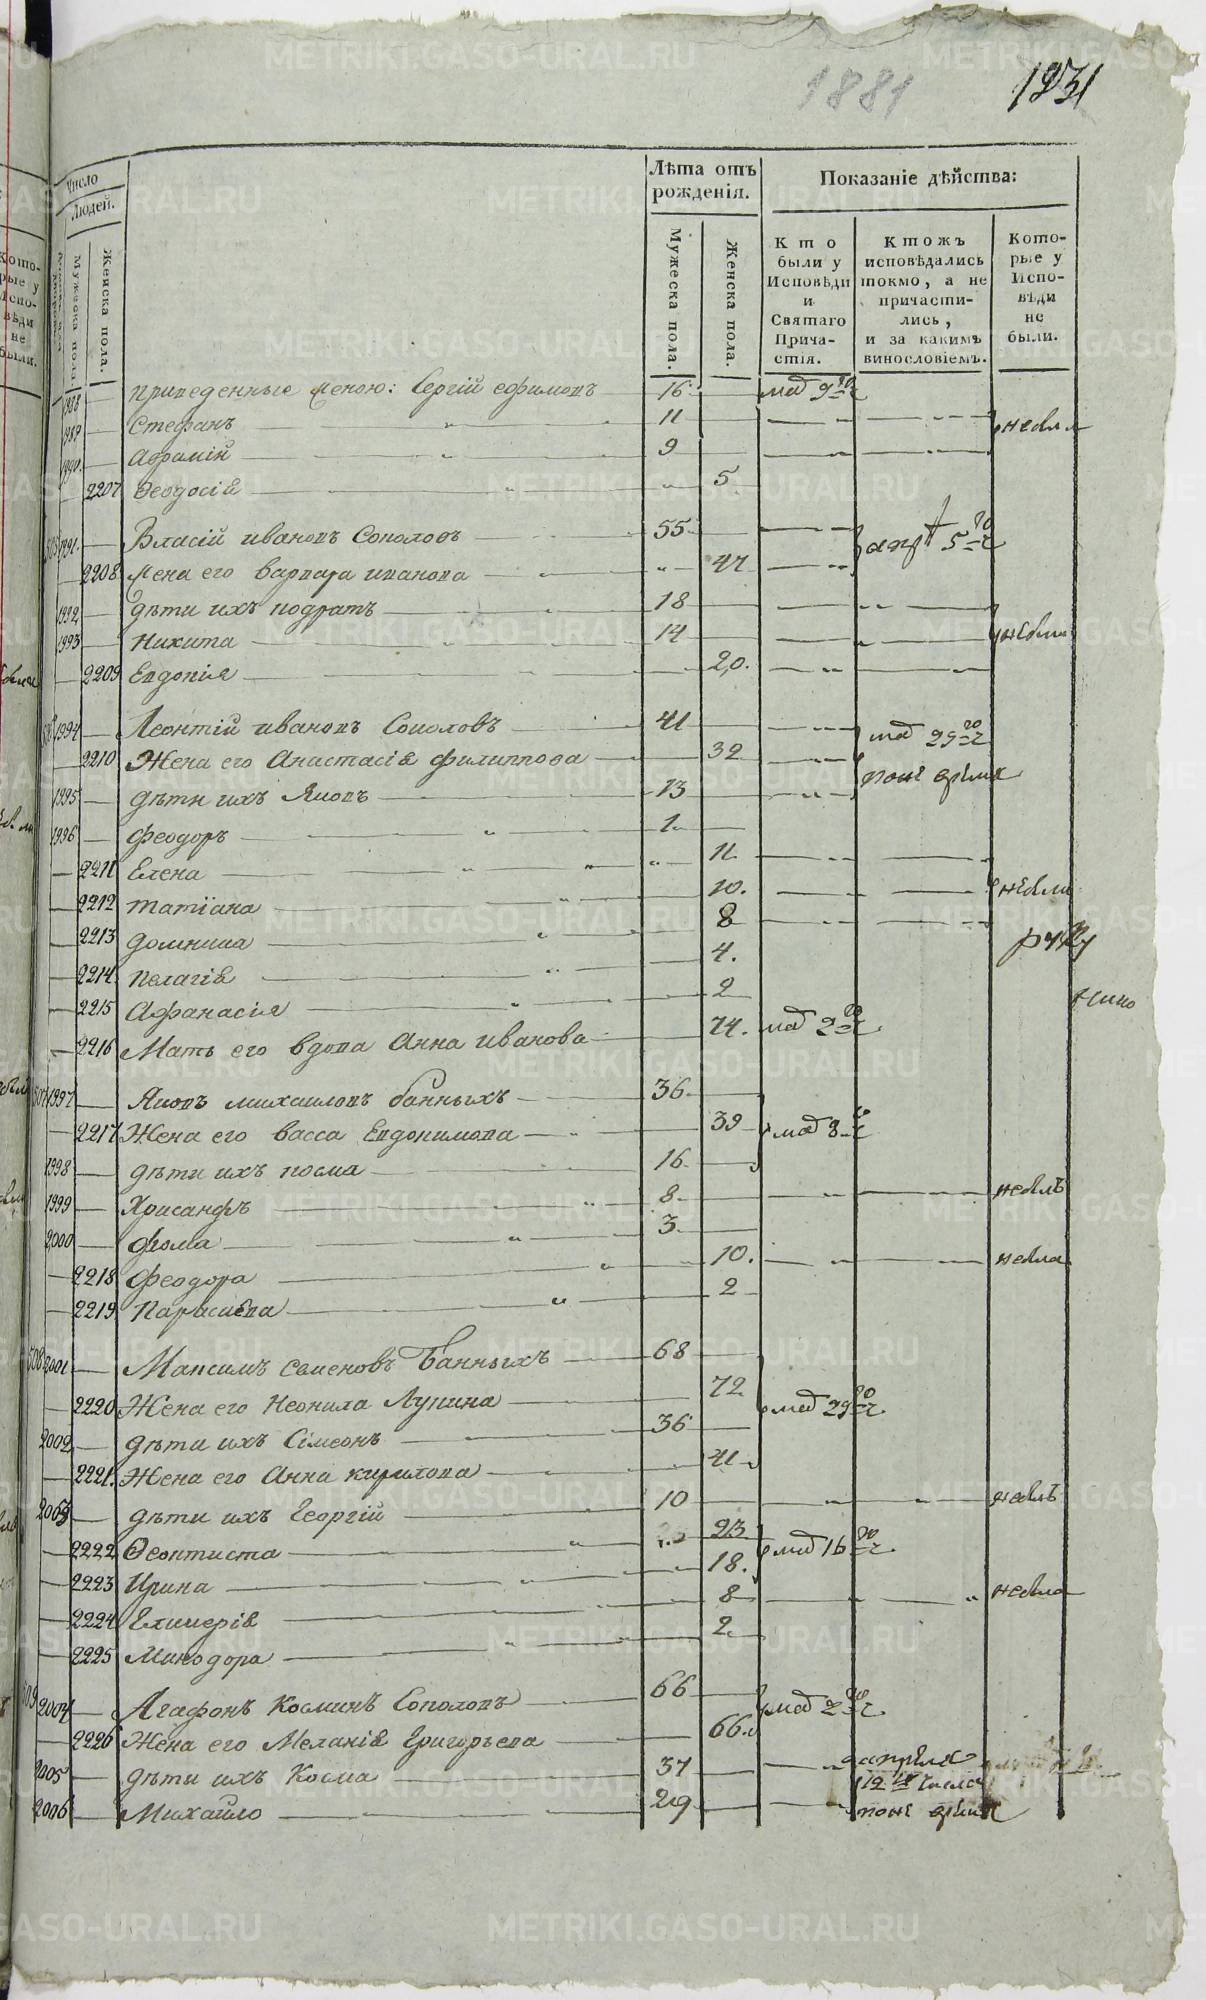 1881
1231
Число
Людей.
Мужеска пола
Женска пола.
Лѣта отъ рожденія.
Мужеска пола.
Женска пола.
Показаніе дѣйства:
Кто были у Исповѣди и Святаго Причастія.
Ктожъ исповѣдались токмо, а не причастились, и за какимъ винословіемъ.
Которые у Исповѣди не были.
1988 приведенные женою: Сергій ефимовъ 16 маія 9го
1989 Стефанъ 11
1990 Авраміи 9
2207 Феодосія 5
1991 Власій ивановъ Соколовъ 55
2208 жена его варвара иванова 47
1992 дѣти ихъ кодратъ 18
1993 Никита 14
2209 Евдокія 20.
1994 Леонтій ивановъ Соколовъ 41 маія 29го
2210 Жена его Анастасія филиппова 32
1995 дѣти ихъ Яковъ 13
1996 феодоръ 1
2211 Елена 11
2212 татіана 10.
2213 домника 8
2214 пелагія 4.
2215 Афанасія 2
2216 Мать его вдова Анна иванова 74. маія 2го
507 1997 Яковъ михаиловъ банныхъ 36
2217 Жена его васса Евдокимова 39 маія 8го
1998 дѣти ихъ косма 16
1999 Хрисанфъ 8
2000 фома 3
2218 феодора 10.
2219 Параскева 2
508 2001 Максимъ семеновъ Банныхъ 68
2220 Жена его Неонила Лукина 72 маія 29го
2002 дѣти ихъ Сімеонъ 36
2221. Жена его Анна кирилова 41
2003 дѣти ихъ Георгій 10
2222 Феоктиста 23 маія 16го
2223 Ирина 18.
2224 Гликерія 8
2225 Минодора 2
509 2004 Агафонъ косминъ Соколовъ 66 маія 2го
2226 Жена его Меланія Григорьева 66
2005 дѣти ихъ Косма 37 апреля
2006 Михайло 29